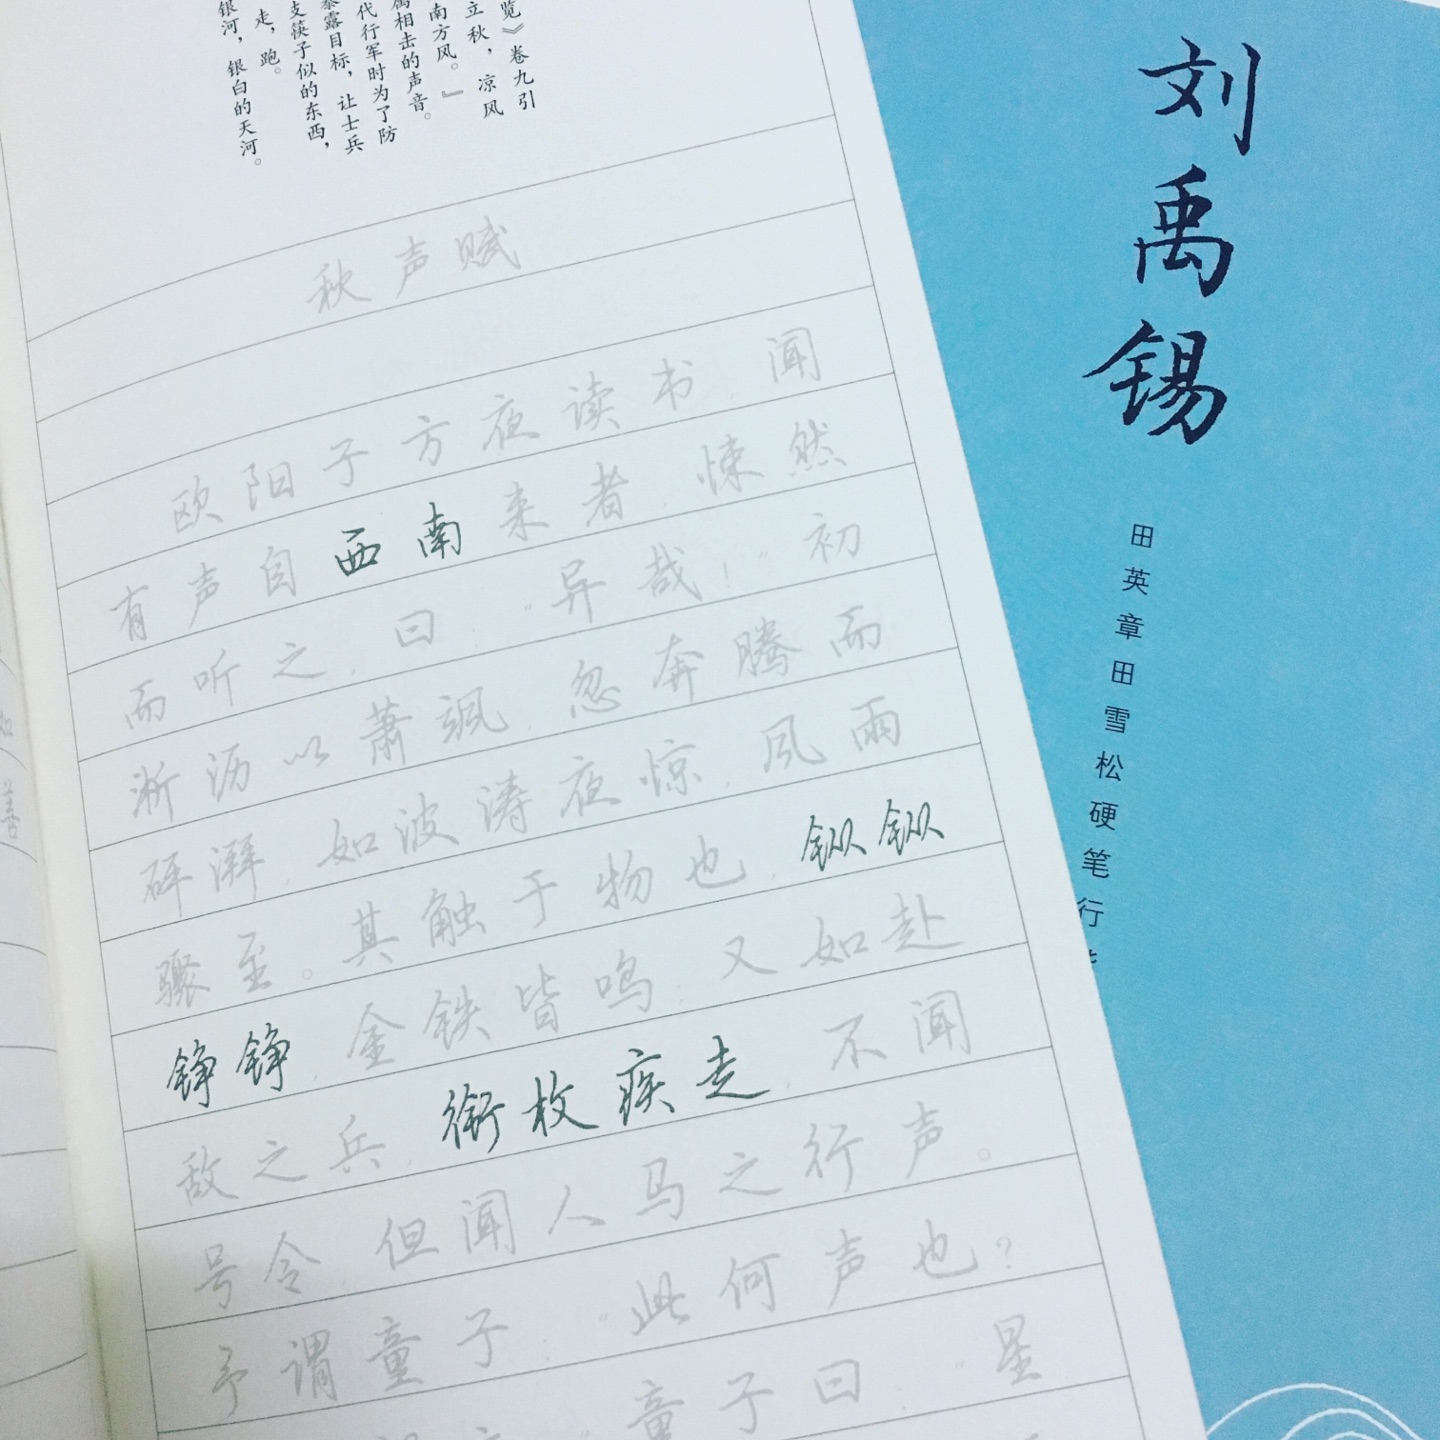 览》卷九引
立秋，凉风
南方风。』
属相击的声音。
代行军时为了防
暴露目标，让士兵
支筷子似的东西，
走，跑。
银河，银白的天河。
秋声赋
欧阳子方夜读书，闻
有声自西南来者，悚然
而听之，曰：“异哉！”初
淅沥以萧飒，忽奔腾而
砰湃，如波涛夜惊，风雨
骤至。其触于物也，鏦鏦
铮铮，金铁皆鸣；又如赴
敌之兵，衔枚疾走，不闻
号令，但闻人马之行声。
予谓童子：“此何声也？
童子曰：“星
刘禹锡
田英章田雪松硬笔行